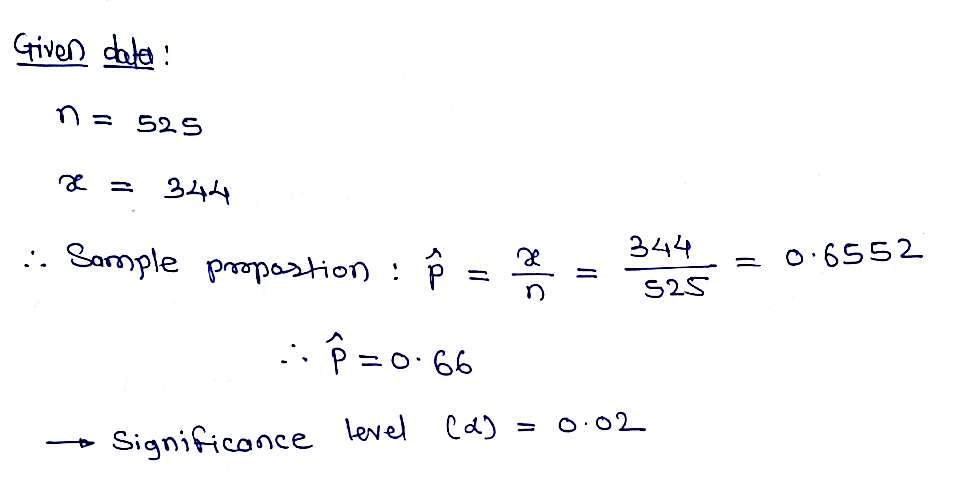 Given data :
n = 525
x = 344
∴ Sample proportion : p̂ = x/n = 344/525 = 0.6552
∴ p̂ = 0.66
→ Significance level (α) = 0.02